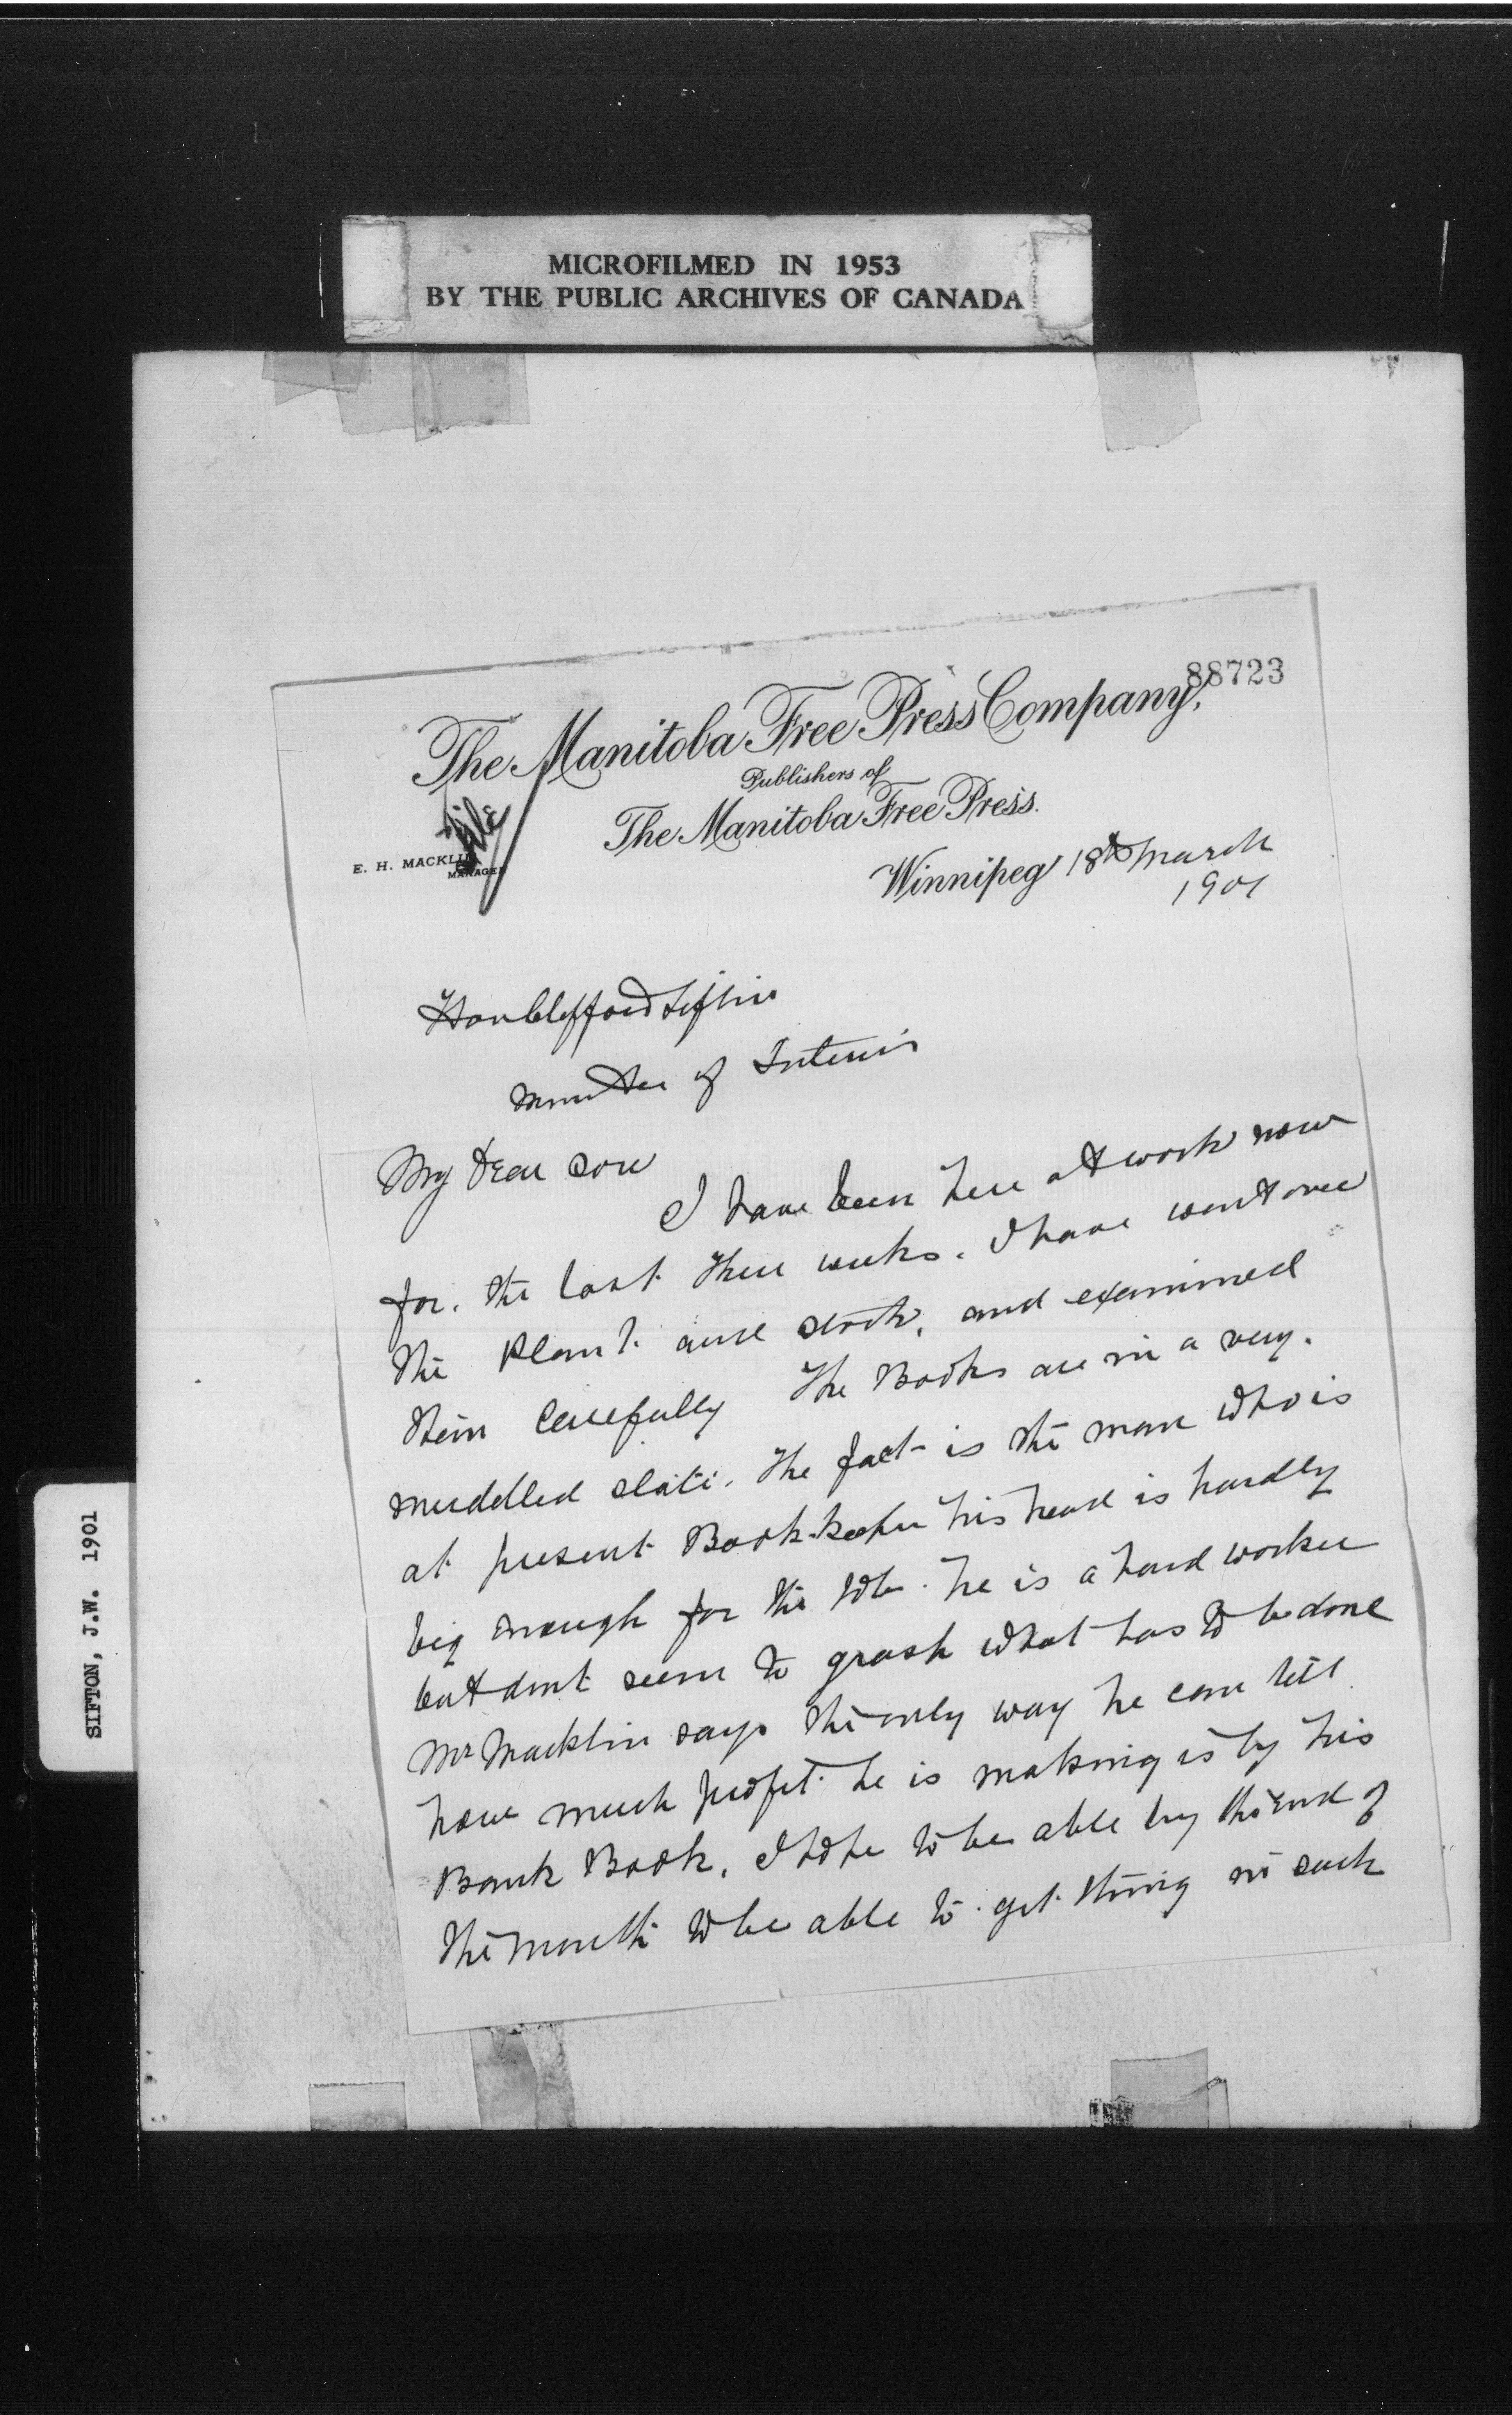 MICROFILMED IN 1953
BY THE PUBLIC ARCHIVES OF CANADA
88723
The Manitoba Free Press Company,
Publishers of
The Manitoba Free Press.
File
E. H. MACKLIN,
MANAGER
Winnipeg 18th March
1901
Hon Clifford Sifton
Minister of Interior
My Dear Son
I have been here at work now
for. the last three weeks. I have went over
the Plant. and stock, and examined
them carefully The Books are in a very.
muddled state. The fact is the man who is
at present Book-keeper his head is hardly
big enough for the Job. he is a hard worker
but dont seem to grasp what has to be done
Mr Macklin says the only way he can tell
how much profit he is making is by his
Bank Book. I hope to be able by the end of
the month to be able to get thing in such
SIFTON, J.W. 1901